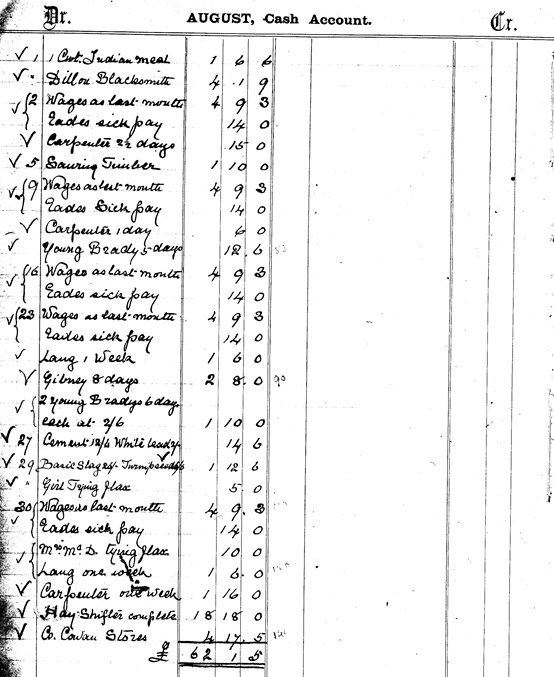 Dr. AUGUST, Cash Account. Cr.
✓ 1 1 Cwt. Indian meal 1 6 6
✓ " Dillon Blacksmith 4 . 1 9
✓ 2 Wages as last month 4 9 3
Eades sick pay 14 0
✓ Carpenter 2½ days 15 0
✓ 5 Sawing Timber 1 10 0
✓ 9 Wages as last month 4 9 3
Eades Sick pay 14 0
✓ Carpenter 1 day 6 0
✓ Young Brady 5 days 12 . 6
✓ 16 Wages as last month 4 9 3
Eades sick pay 14 0
✓ 23 Wages as last month 4 9 3
Eades sick pay 14 0
✓ Lang 1 Week 1 6 0
✓ Gibney 8 days 2 8 . 0 90
✓ 2 Young Bradys 6 days
each at 2/6 1 10 0
✓ 27 Cement 12/6 White lead 2/- 14 6
✓ 29 Basic Slag 24/- 1 12 6
✓ " Girl Tying flax 5 . 0
30 Wages as last month 4 9 . 3
✓ Eades sick pay 14 0
✓ Mrs Mc D. tying flax 10 0
Lang one week 1 6 . 0
✓ Carpenter one week 1 16 0
✓ Hay Shifter complete 18 18 0
✓ Cowan Stores 4 17 . 5
£ 62 1 5